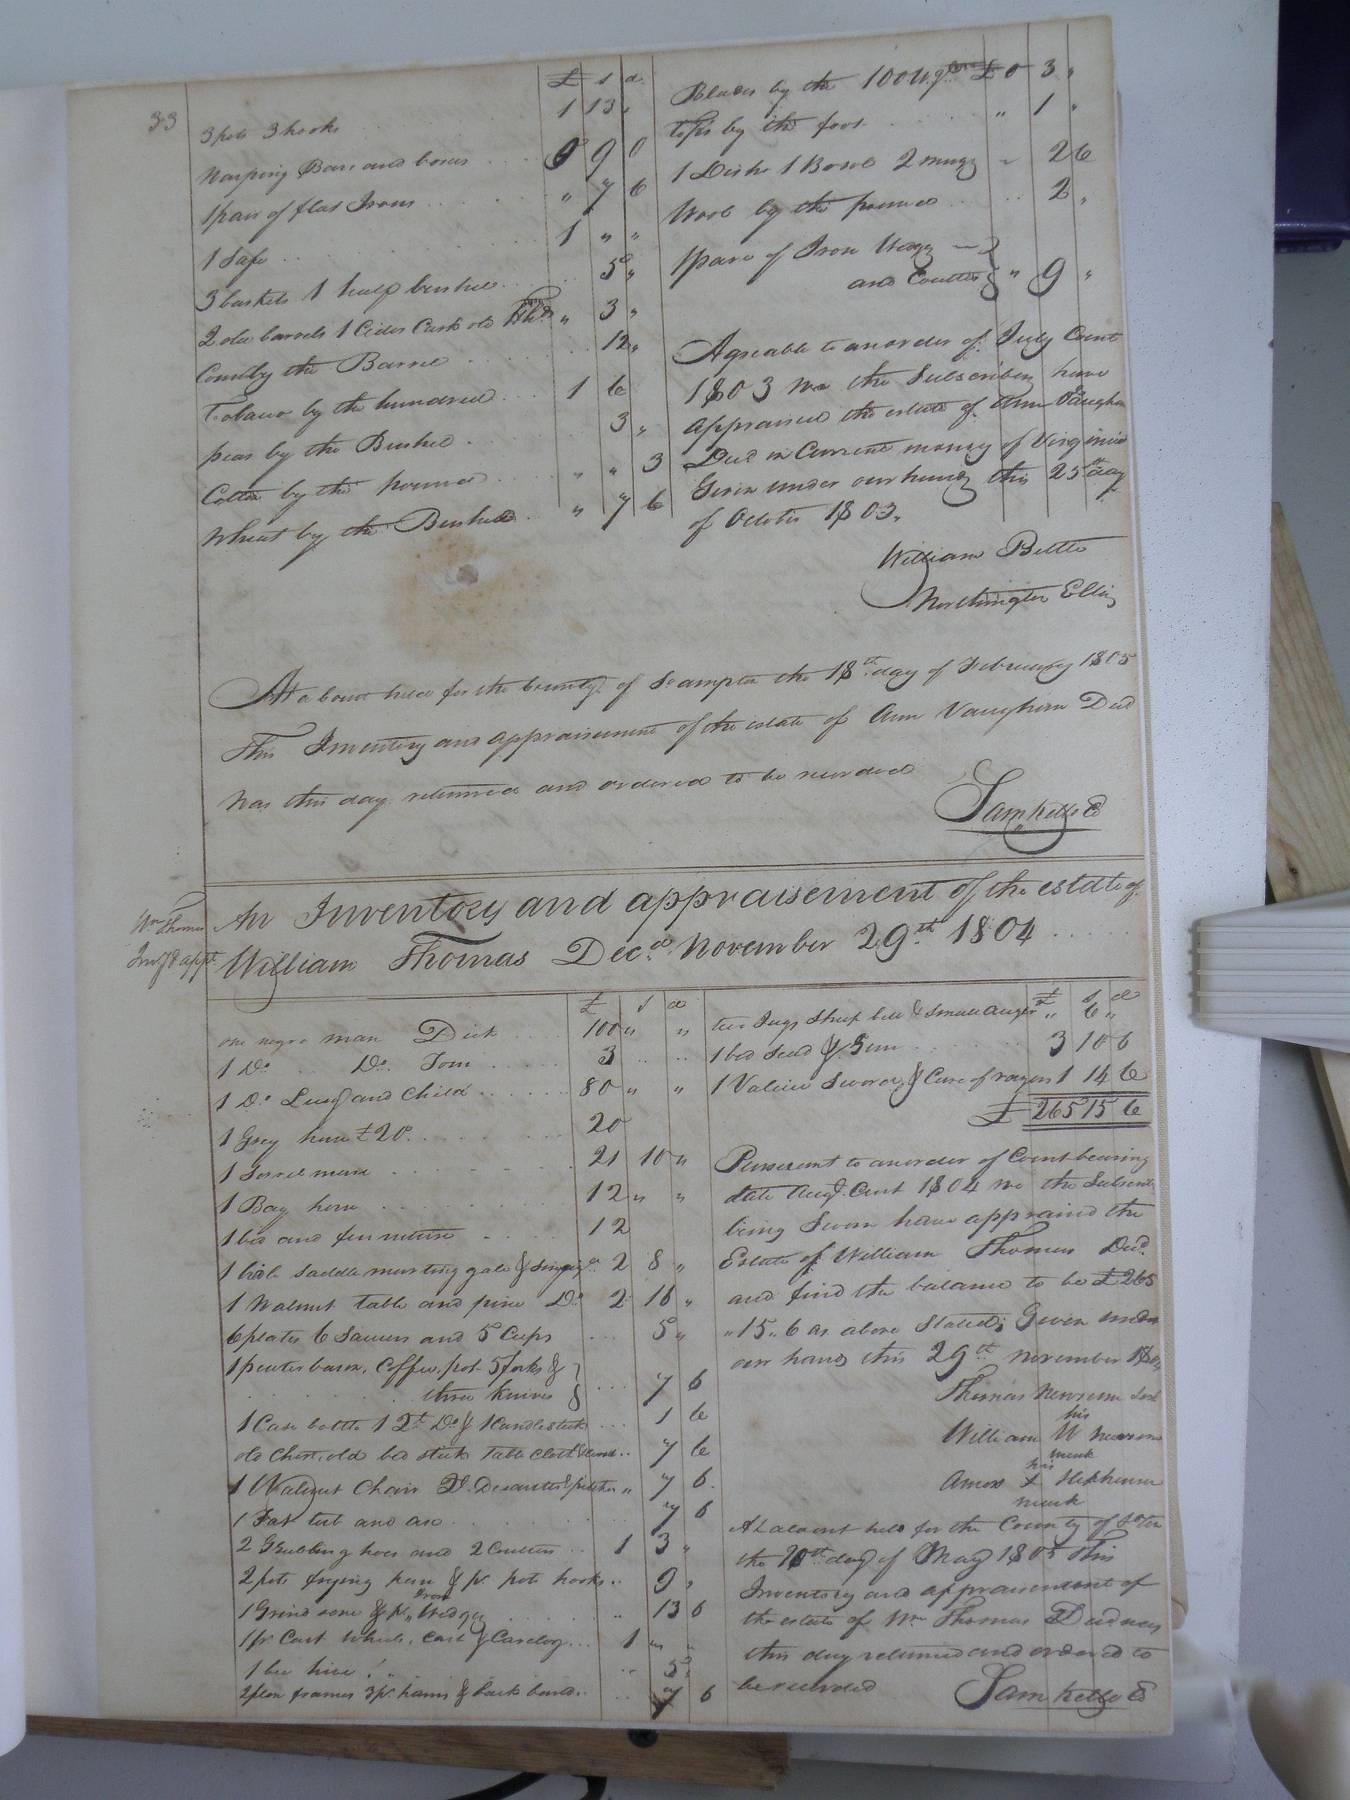 33
£ s d
3 pots 3 hooks 1 13 "
Warping Bars and boxes 0 9 0
1 pair of flat Irons " 7 6
1 Safe 1 " "
3 baskets 1 half bushel 5 "
2 old barrels 1 Cider Cask old " 3 "
Corn by the Barrel 12 "
Tobacco by the hundred 1 6
peas by the Bushel 3 "
Cotton by the pound " " 3
Wheat by the Bushel " 7 6
Blades by the 100 £ 0 3 "
tops by the foot " 1 "
1 Dish 1 Bowl 2 mugs " 2 6
Wool by the pound 2 "
1 pare of Iron Wedgs
and Coulter " 9 "
Agreable to an order of July Court
1803 We the Subscribers have
appraised the estate of Ann Vaughan
Decd in Current money of Virginia
Given under our hands this 25th day
of October 1803.
William Bittle
Northington Ellis
At a Court held for the County of So ampton the 18th day of February 1805
This Inventory and appraisement of the estate of Ann Vaughan Decd
Was this day returned and ordered to be recorded
Sam Kello CC
Wm Thomas
Invy & appt
An Inventory and appraisement of the estate of
William Thomas Decd. November 29th 1804
£ s d
one negro man Dick 100 " "
1 Do. Do. Tom 3
1 Do Lucy and Child 80 " "
1 Grey horse £20. 20
1 Sorrel mare 21 10 "
1 Bay horse 12 " "
1 bed and furniture 12
1 bridle Saddle martingale & 2 8 "
1 Walnut table and pine Do 2 16 "
6 plates 6 Saucers and 5 Cups 5 "
1 pewter bason, Coffee pot 5 forks &
three knives 7 6
1 Case bottle 1 Qt. Do & 1 Candlestick 1 6
old Chest, old bed stick Table cloth 7 6
1 Walnut Chair Do. Decanter & pitcher " 7 6
1 Fat tub and axe 7 6
2 Grubbing hoes and 2 Coulters 1 3 "
2 pots frying pan & pr. pot hooks 9 "
1 Grind stone & pr Iron Wedges " 13 6
1 pr. Cart Wheels, Cart & 1 " "
1 bee hive 5 "
2 plow frames 3 pr. hams & back bands 7 6
£ s d
two Jugs Sheep bell & small auger " 6 "
1 bed Stead & Gun 3 10 6
1 Valice Sword & Case of razors 1 14 6
£ 265 15 6
Pursuant to an order of Court bearing
date Augt. Court 1804 We the Subscribers
being Sworn have appraised the
Estate of William Thomas Decd.
and find the balance to be £265
" 15 " 6 as above Stated; Given under
our hands this 29th November 1804
Thomas Newsum
his
William W Newsum
mark
his
Amos X Stephenson
mark
At a Court held for the County of Soton
the 20th day of May 1805 This
Inventory and appraisement of
the estate of Wm Thomas Decd was
this day returned and ordered to
be recorded
Sam Kello CC